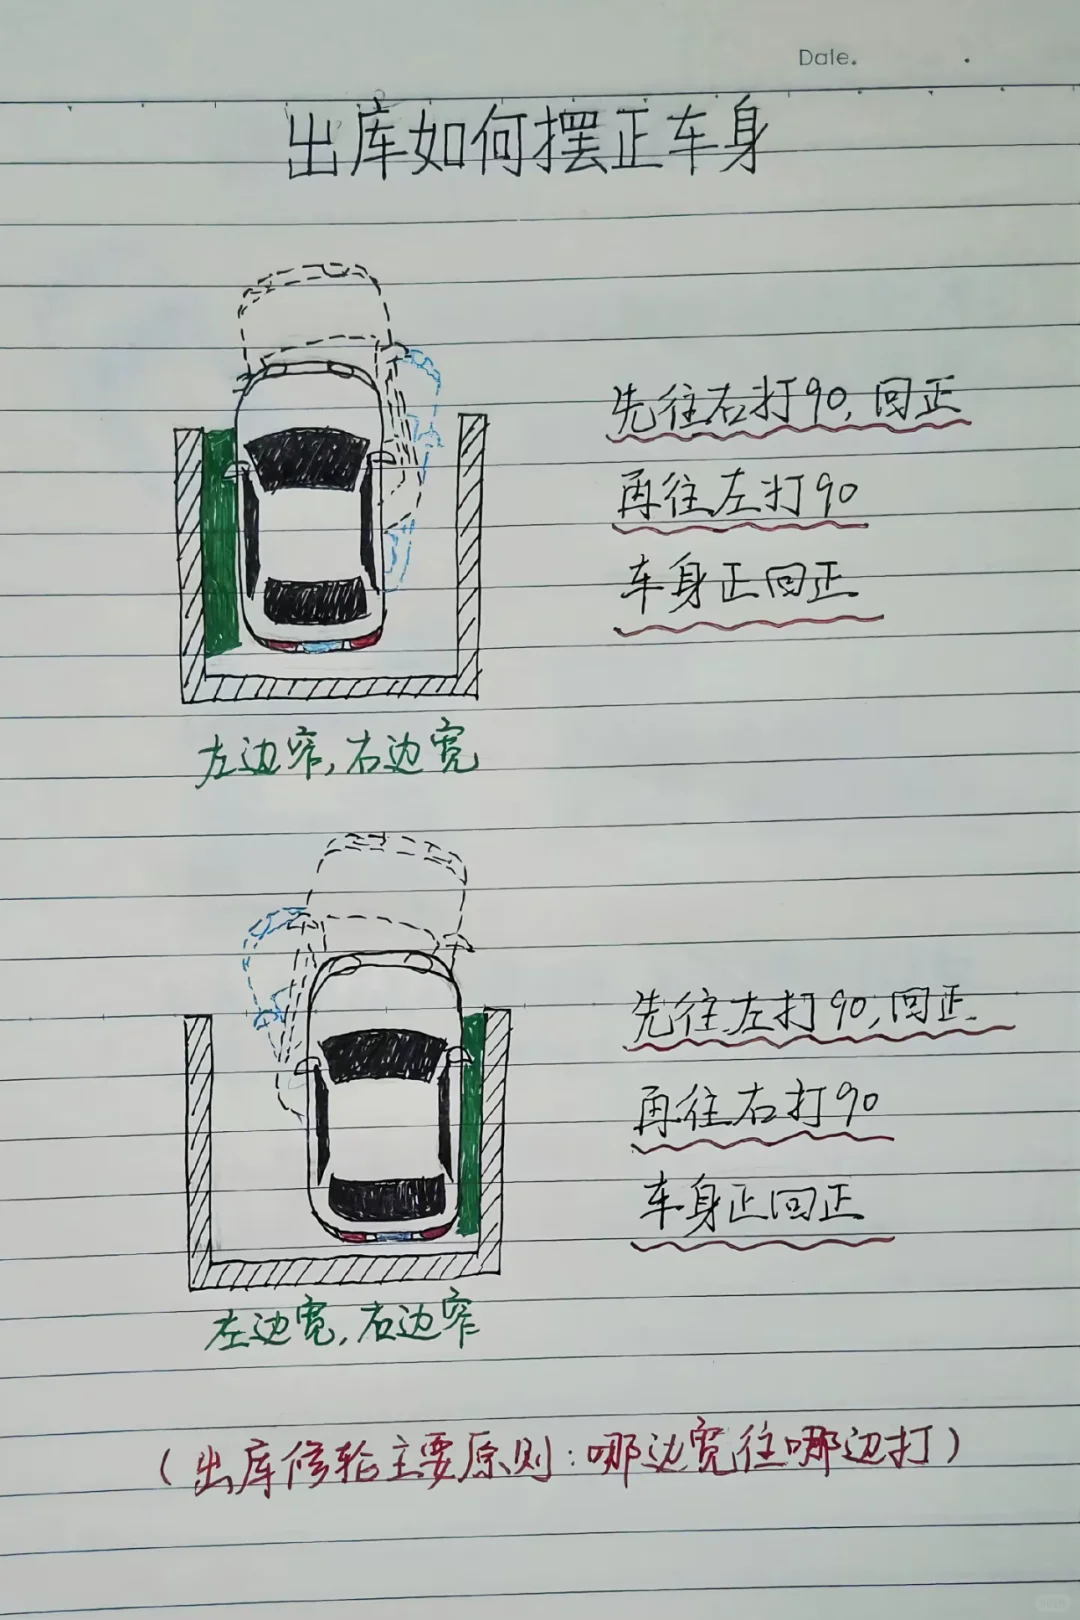 Date.
出库如何摆正车身
先往右打90,回正
再往左打90
车身正回正
左边窄,右边宽
先往左打90,回正
再往右打90
车身正回正
左边宽,右边窄
(出库修轮主要原则:哪边宽往哪边打)